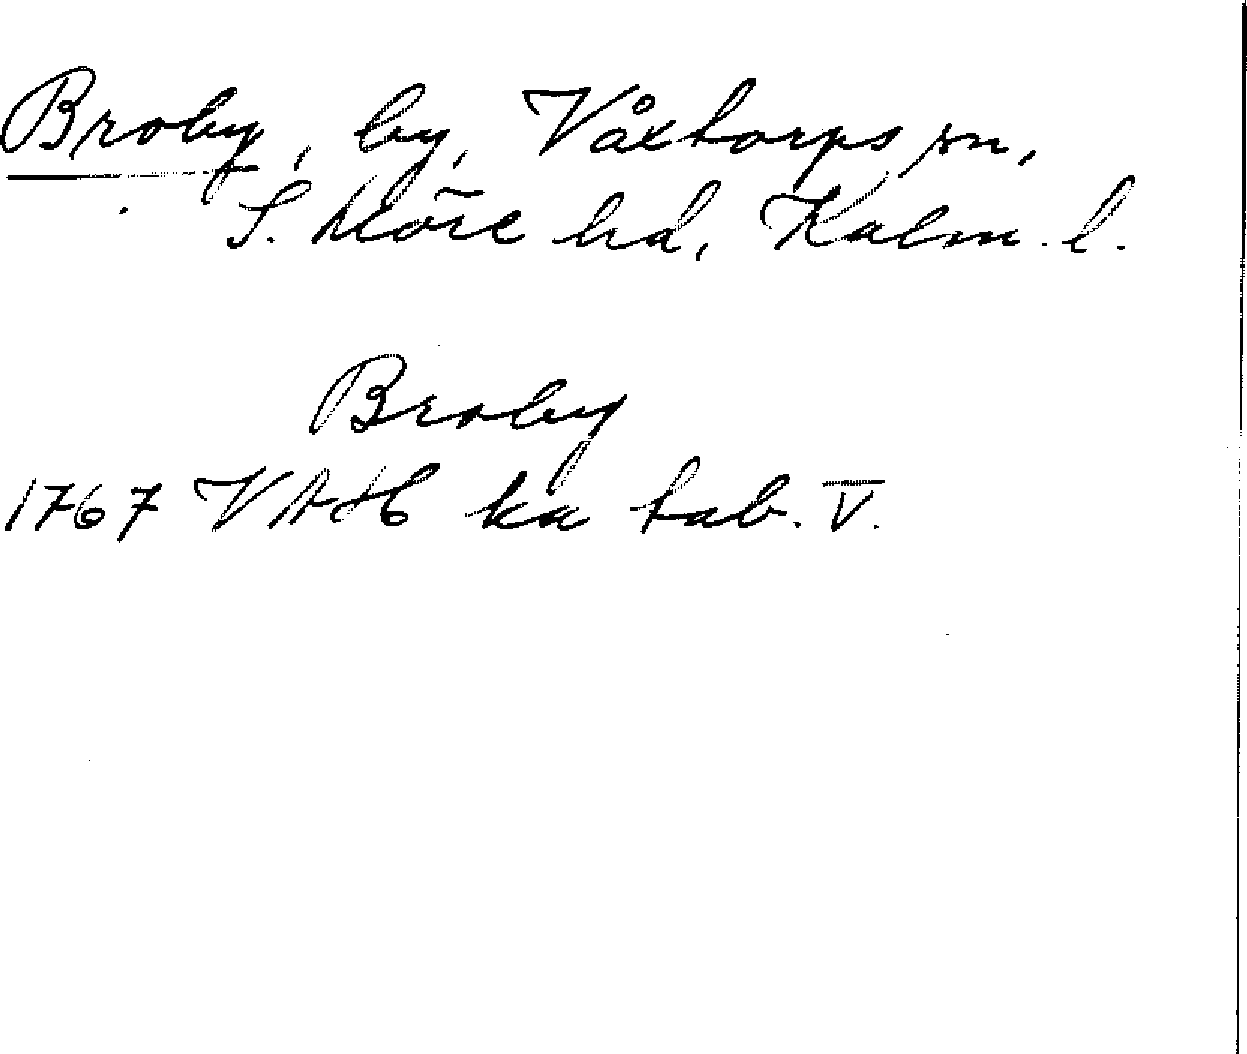 Broby, by, Våxtorps sn,
S. Möre hd, Kalm. l.
Broby
1767 VAH ka tab. V.